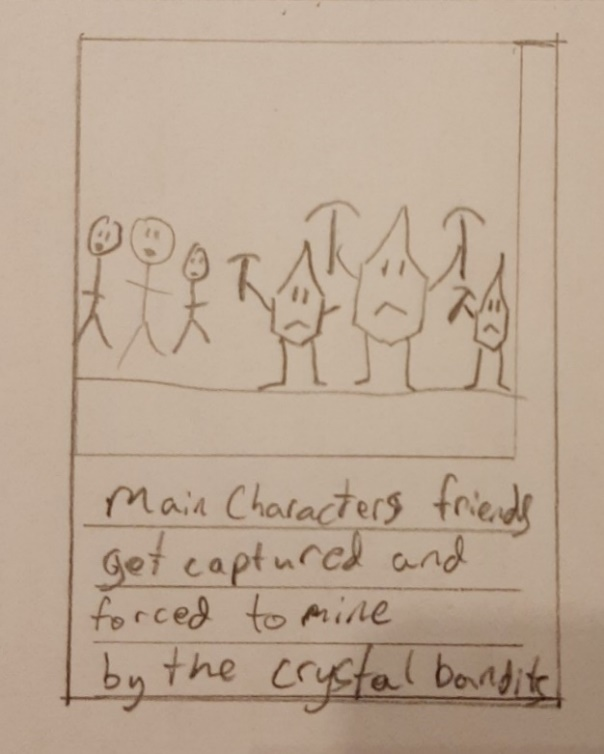 Main Characters friends
get captured and
forced to mine
by the crystal bandits